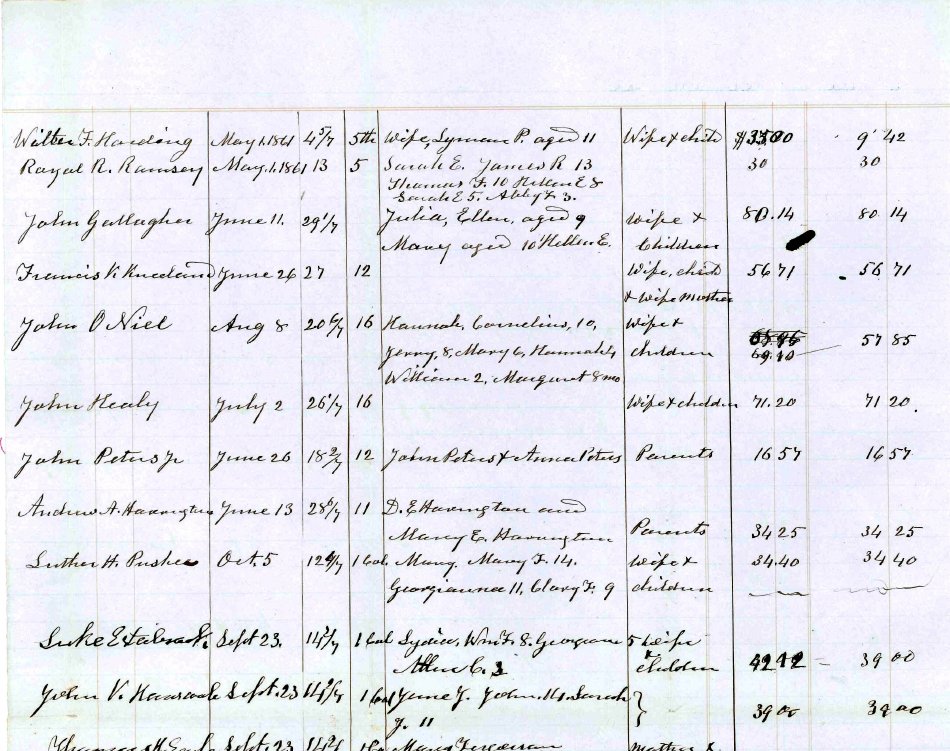 Wilber F. Harding May 1. 1861 4 5/7 5th Wife, Lyman P. aged 11 Wife & child 9 42
Royal R. Ramsey May 1. 1861 13 5 Sarah E. James R 13 30 30
Thomas F. 10 Hellen E 8
Sarah E 5. Abby F 3.
John Gallagher June 11. 29 1/7 Julia, Ellen, aged 9 Wife & 80.14 80 14
Mary aged 10 Hellen E. Children
Francis V. June 26 27 12 Wife, child 56 71 56 71
& Wife Mother
John O Niel Aug 8 20 6/7 16 Hannah, Cornelius, 10, Wife &
Jerry, 8, Mary 6, Hannah 4 children 69.10 57 85
William 2, Margaret 8 mo
John Healy July 2 26 1/7 16 Wife & children 71.20 71 20.
John Peters Jr June 26 18 2/7 12 John Peters & Anna Peters Parents 16 57 16 57
Andrew A. Harrington June 13 28 6/7 11 D. E Harrington and
Mary E. Harrington Parents 34 25 34 25
Luther H. Oct. 5 12 1 Cal. Mary, Mary F. 14. Wife & 34.40 34 40
Georgianna 11, Clary F. 9 children
Luke Sept 23. 14 1 Cal Lydia, Wm F. 8. Georgiana 5 Wife
& children 39 00
John V. Sept. 23 14 1 Cal Jane J. John. 14. Sarah }
J. 11 39 00 39 00
Sept. 23 14 Mary